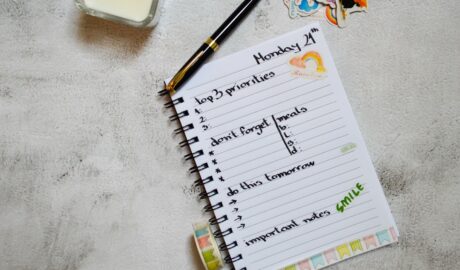 Monday 24th
top 3 priorities
1:
2:
3:
don't forget
meals
b:
L:
s:
d:
do this tomorrow
important notes
SMILE